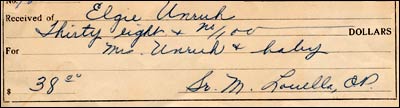 Received of Elgie Unruh
Thirty eight & no/100 DOLLARS
For Mrs. Unruh & baby
$ 38.00 Sr. M. Louella, OP.